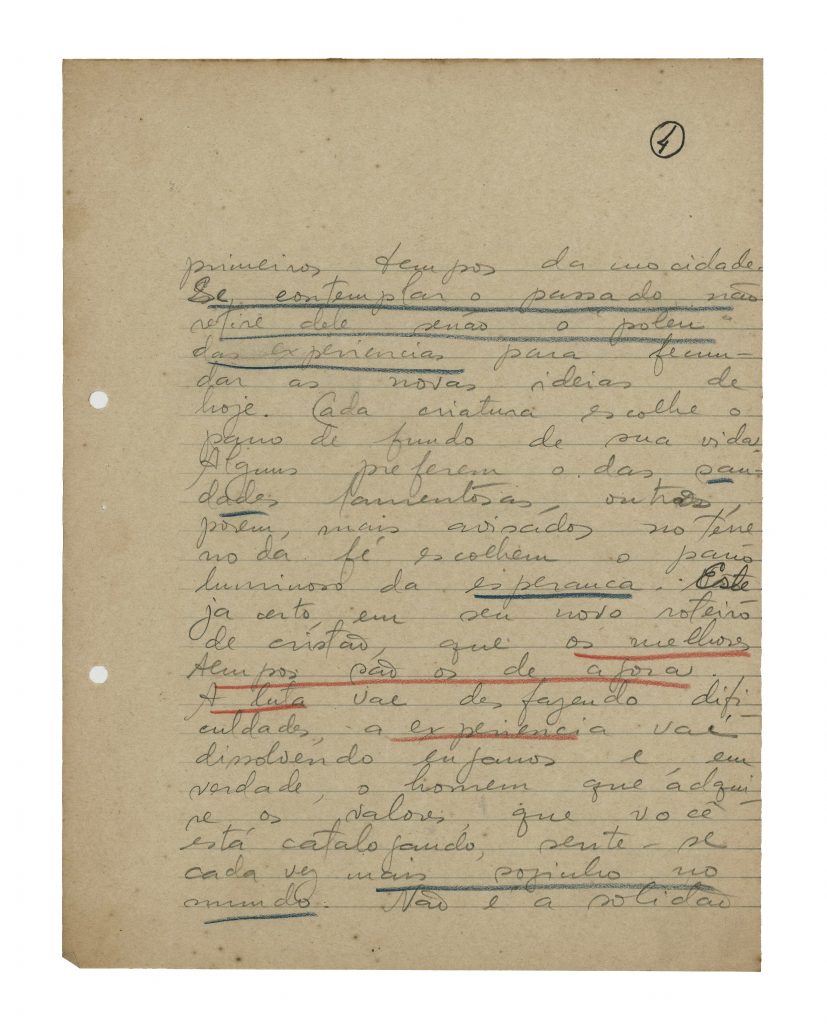 4
primeiros tempos da mocidade.
Se contemplar o passado não
retire dele senão o "polen"
das experiencias para fecun-
dar as novas ideias de
hoje. Cada criatura escolhe o
pano de fundo de sua vida.
Alguns preferem o das sau-
dades lamentosas, outros,
porem, mais avisados no terre
no da fé escolhem o pano
luminoso da esperanca. Este
ja certo, em seu novo roteiro
de cristão, que os melhores
tempos são os de agora.
A luta vae desfazendo difi
culdades, a experiencia vae
dissolvendo enganos e, em
verdade, o homem que adqui-
re os valores, que você
está catalogando, sente-se
cada vez mais sozinho no
mundo. Não é a solidão